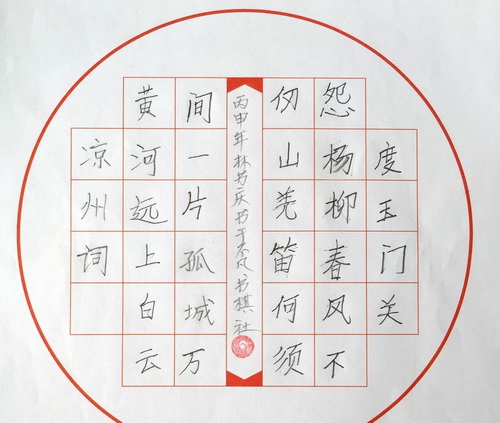 凉州词
黄河远上白云
间一片孤城万
丙申年林庆书于凡书棋社
仞山羌笛何须
怨杨柳春风不
度玉门关